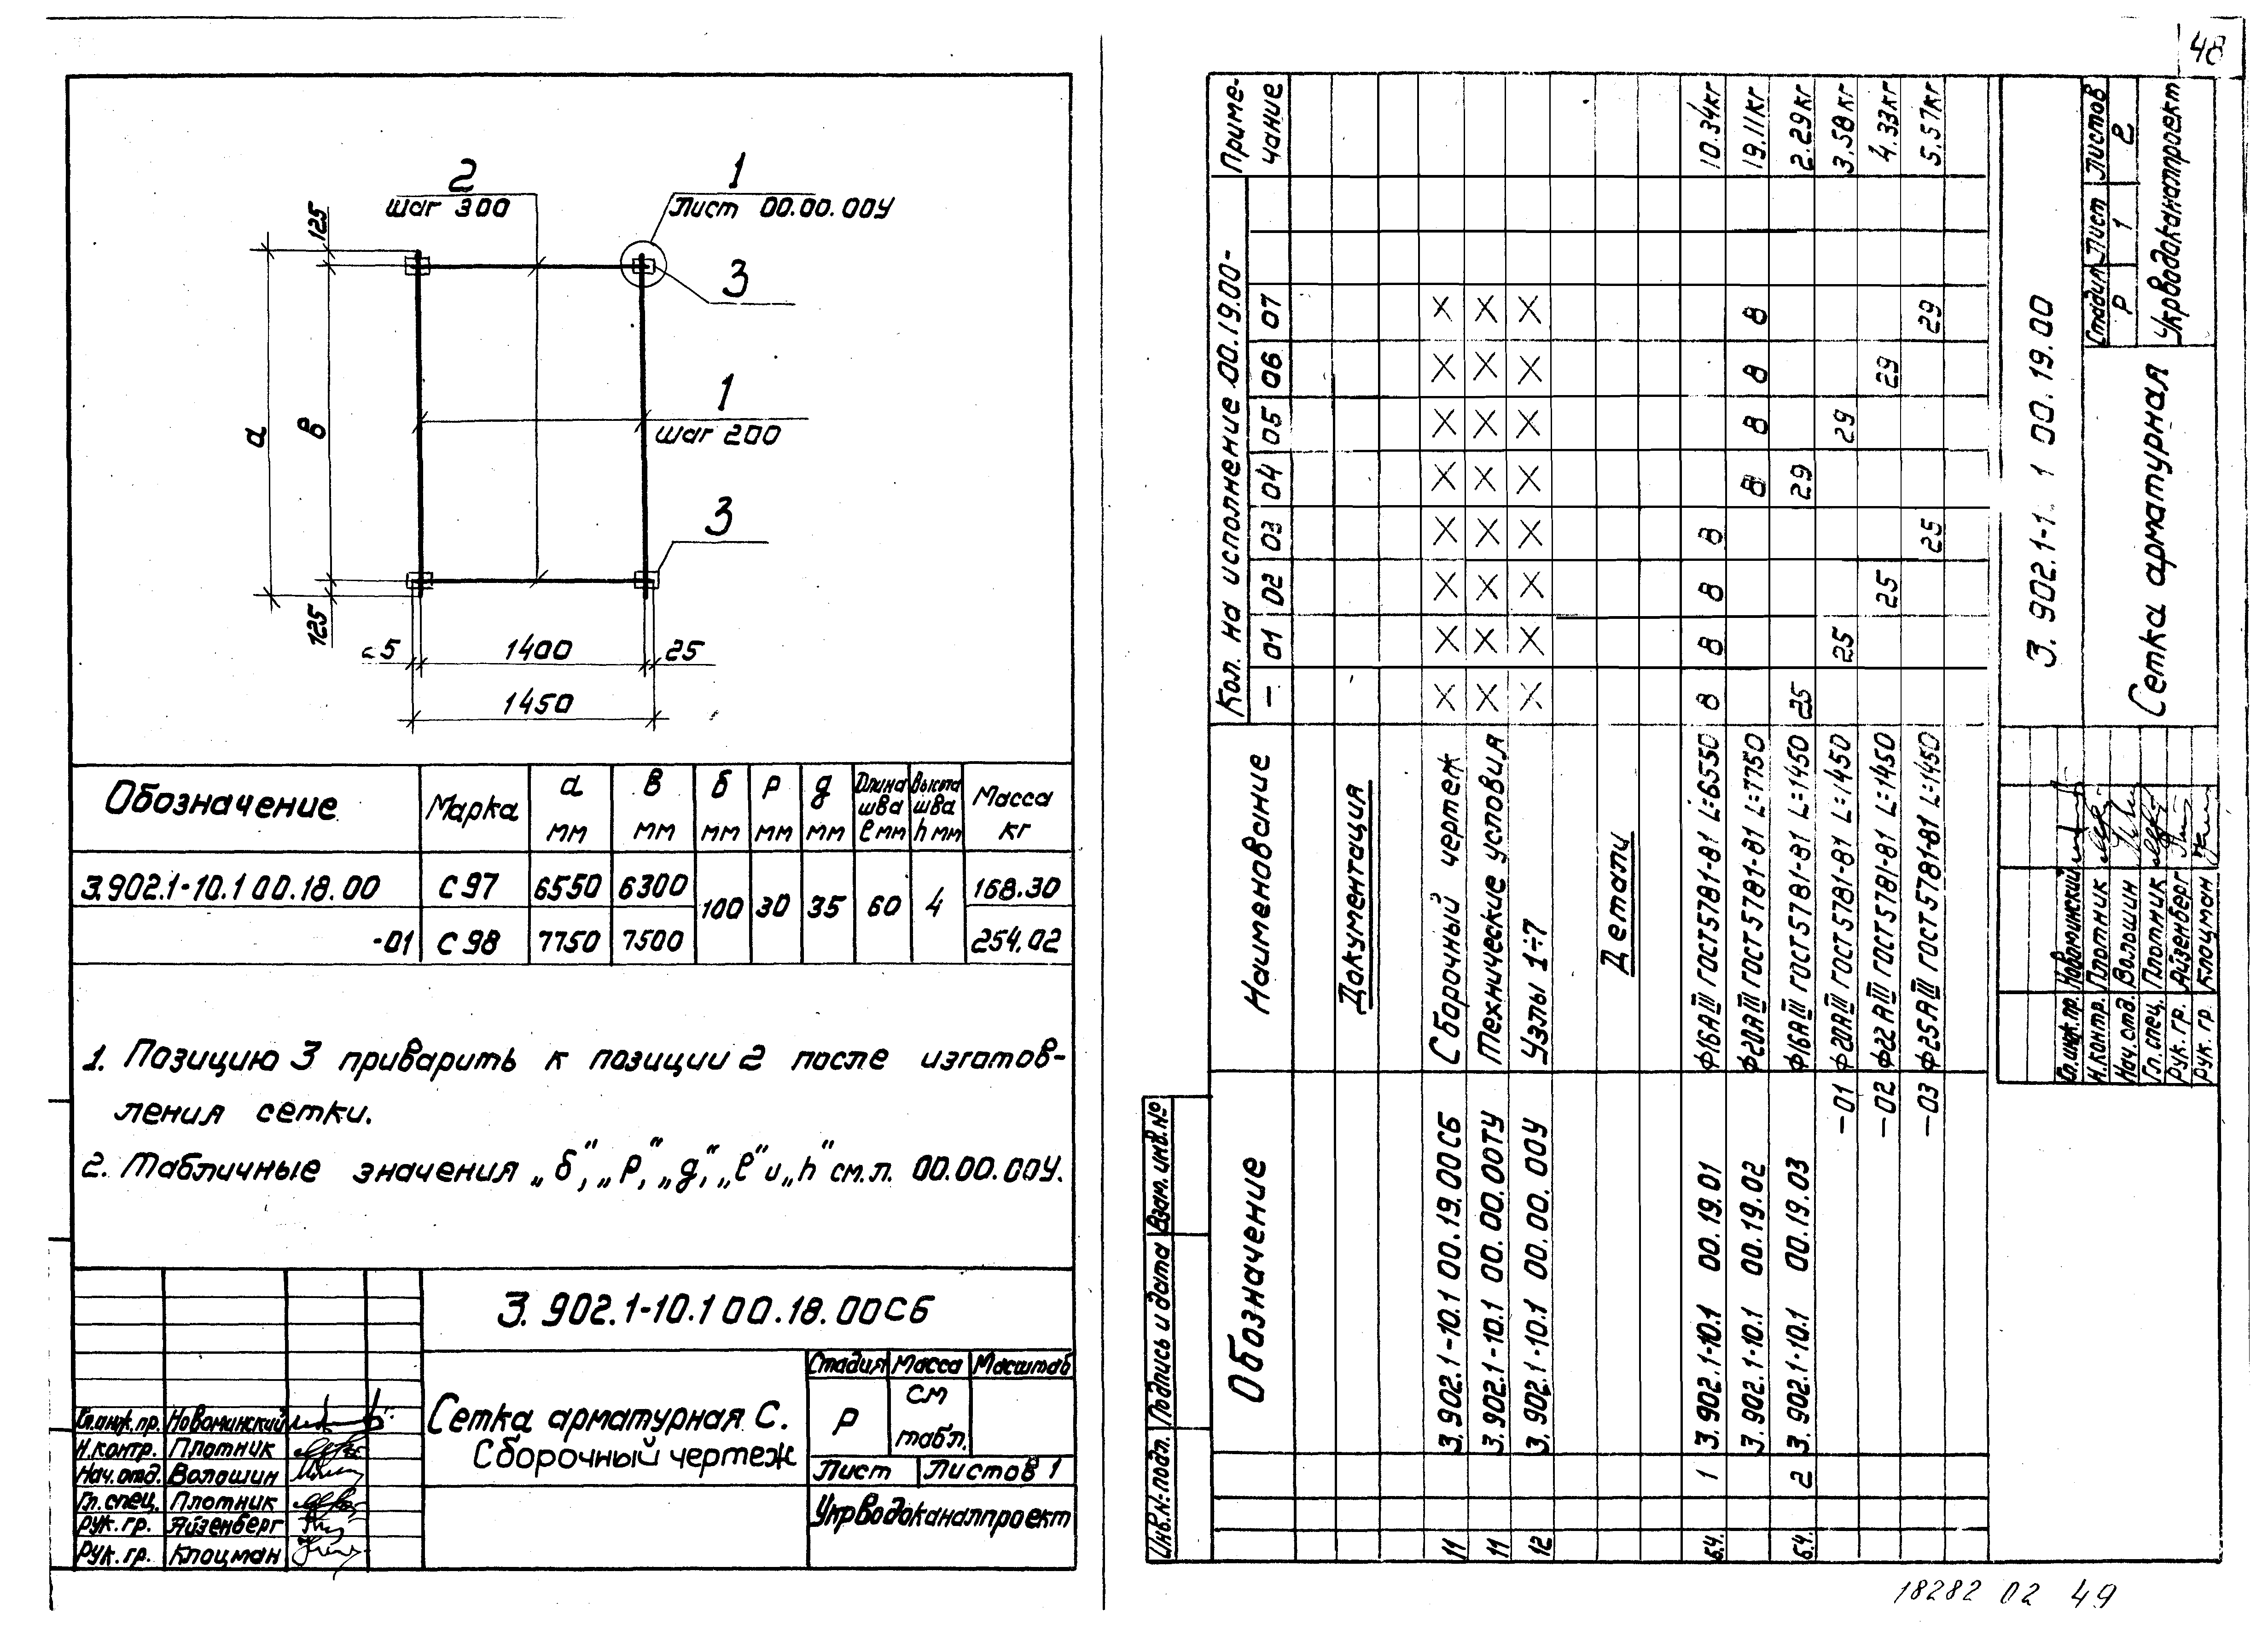 48
2
шаг 300
1
Лист 00.00.00У
3
1
шаг 200
3
125
а
в
125
1400
25
1450
Обозначение Марка а мм в мм б мм р мм д мм Длина шва ℓ мм Высота шва h мм Масса кг
3.902.1-10.1 00.18.00 С97 6550 6300 100 30 35 60 4 168.30
-01 С98 7750 7500 254.02
1. Позицию 3 приварить к позиции 2 после изготов-
ления сетки.
2. Табличные значения „б“, „р“, „д“, „ℓ“ и „h“ см.л. 00.00.00У.
3.902.1-10.1 00.18.00СБ
Сетка арматурная С.
Сборочный чертеж
Стадия Масса Масштаб
Р см табл.
Лист Листов 1
Укрводоканалпроект
Гл.инж.пр. Новоминский
Н.контр. Плотник
Нач.отд. Волошин
Гл.спец. Плотник
Рук.гр. Айзенберг
Рук.гр. Клоцман
Обозначение Наименование Кол. на исполнение 00.19.00- Приме-
чание
— 01 02 03 04 05 06 07
Документация
11 3.902.1-10.1 00.19.00СБ Сборочный чертеж X X X X X X X X
11 3.902.1-10.1 00.00.00ТУ Технические условия X X X X X X X X
12 3.902.1-10.1 00.00.00У Узлы 1÷7 X X X X X X X X
Детали
б.ч. 1 3.902.1-10.1 00.19.01 Ф16АIII ГОСТ5781-81 L=6550 8 8 8 8 10.34кг
3.902.1-10.1 00.19.02 Ф20АIII ГОСТ5781-81 L=7750 8 8 8 8 19.11кг
б.ч. 2 3.902.1-10.1 00.19.03 Ф16АIII ГОСТ5781-81 L=1450 25 29 2.29кг
-01 Ф20АIII ГОСТ5781-81 L=1450 25 29 3.58кг
-02 Ф22АIII ГОСТ5781-81 L=1450 25 29 4.33кг
-03 Ф25АIII ГОСТ5781-81 L=1450 25 29 5.57кг
Инв.№ подл. Подпись и дата Взам. инв.№
3.902.1-1. 1 00.19.00
Сетка арматурная
Стадия Лист Листов
Р 1 2
Укрводоканалпроект
Гл.инж.пр. Новоминский
Н.контр. Плотник
Нач.отд. Волошин
Гл.спец. Плотник
Рук.гр. Айзенберг
Рук.гр. Клоцман
18282 02 49